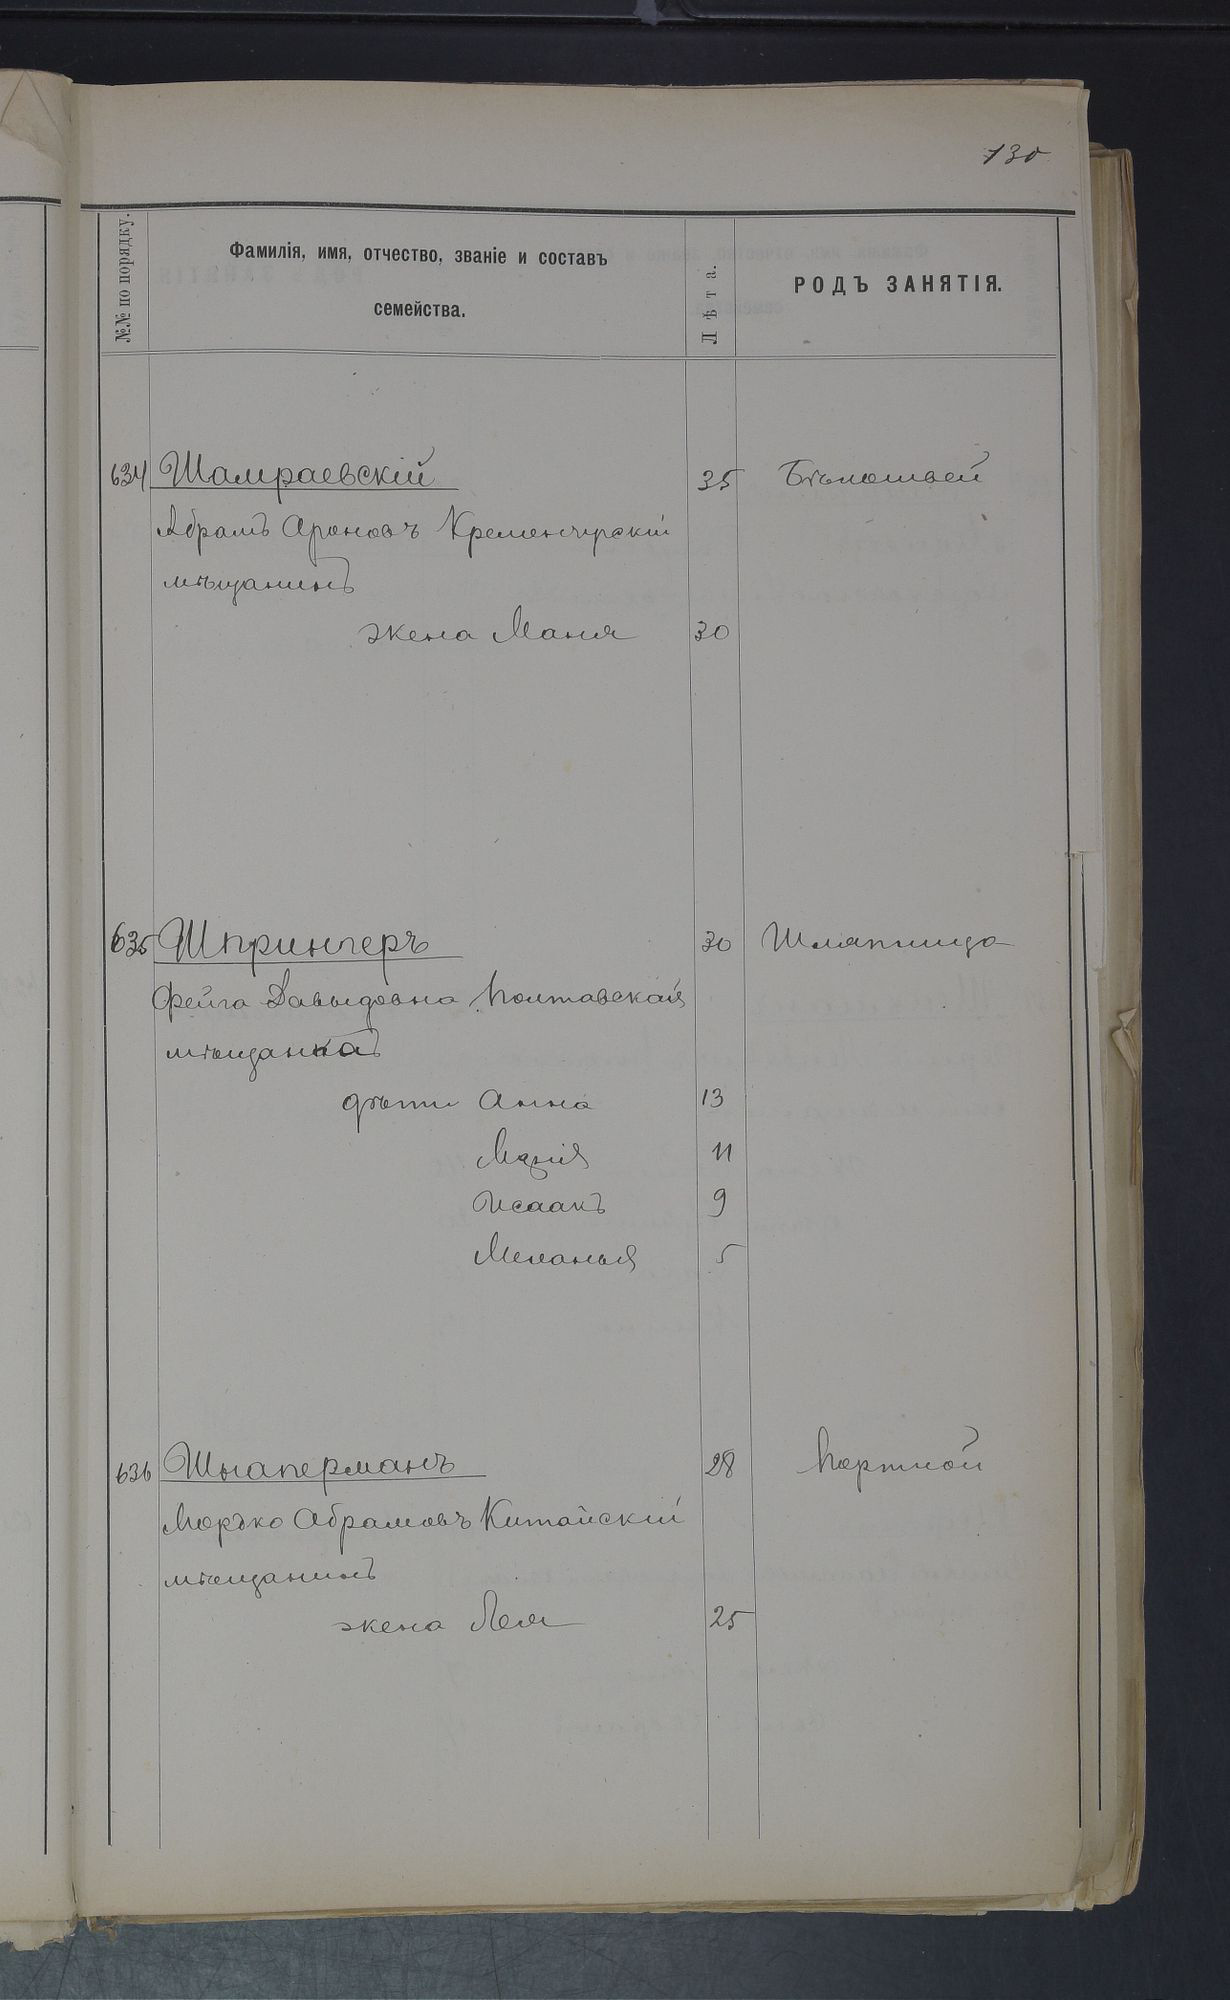 130
№№ по порядку.
Фамилія, имя, отчество, званіе и составъ
семейства.
Лѣта.
РОДЪ ЗАНЯТІЯ.
634 Шамраевскій 35 Бѣлошвей
Абрамъ Ароновъ Кременчугскій
мѣщанинъ
жена Маня 30
635 Шпрингеръ 30 Шляпница
Фейга Давыдовна Полтавская
мѣщанка
дѣти Анна 13
Марія 11
Исаакъ 9
Меланья 5
636 28 Портной
Моръко Абрамовъ Китайскій
мѣщанинъ
жена Лея 25